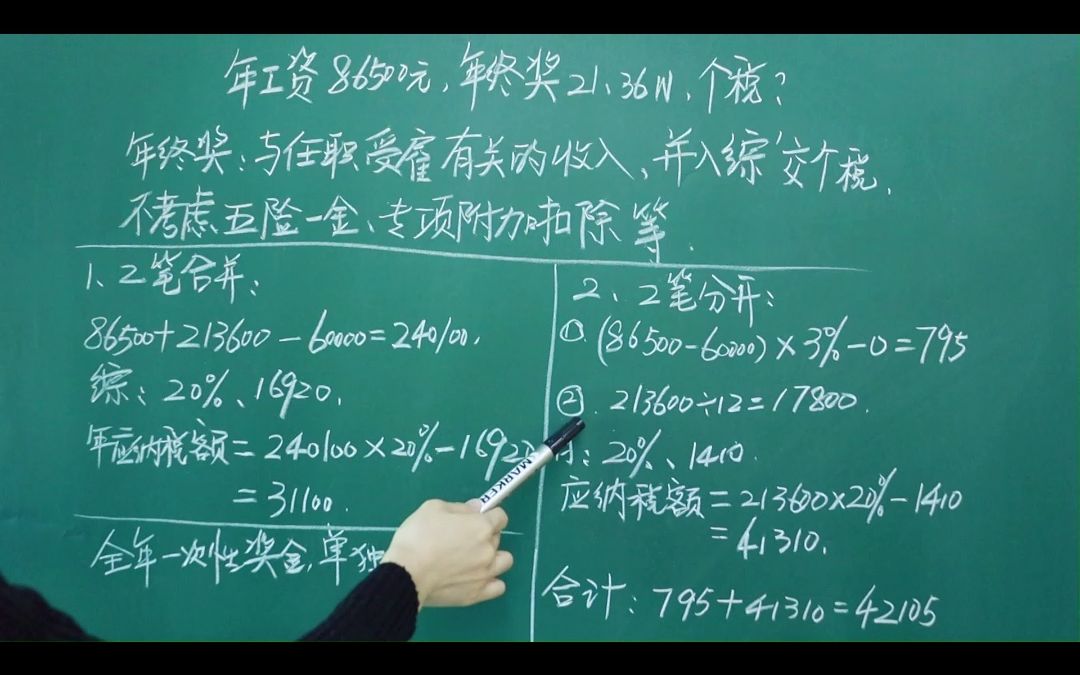 年工资86500元,年终奖21.36W、个税?
年终奖:与任职受雇有关的收入、并入综'交个税.
不考虑五险一金、专项附加扣除等.
1、2笔合并:
86500+213600-60000=240100.
综:20%、16920.
年应纳税额=240100×20%-16920
=31100.
全年一次性奖金,单独
2、2笔分开:
①.(86500-60000)×3%-0=795
②.213600÷12=17800.
月:20%、1410.
应纳税额=213600×20%-1410
=41310.
合计:795+41310=42105
MARKER